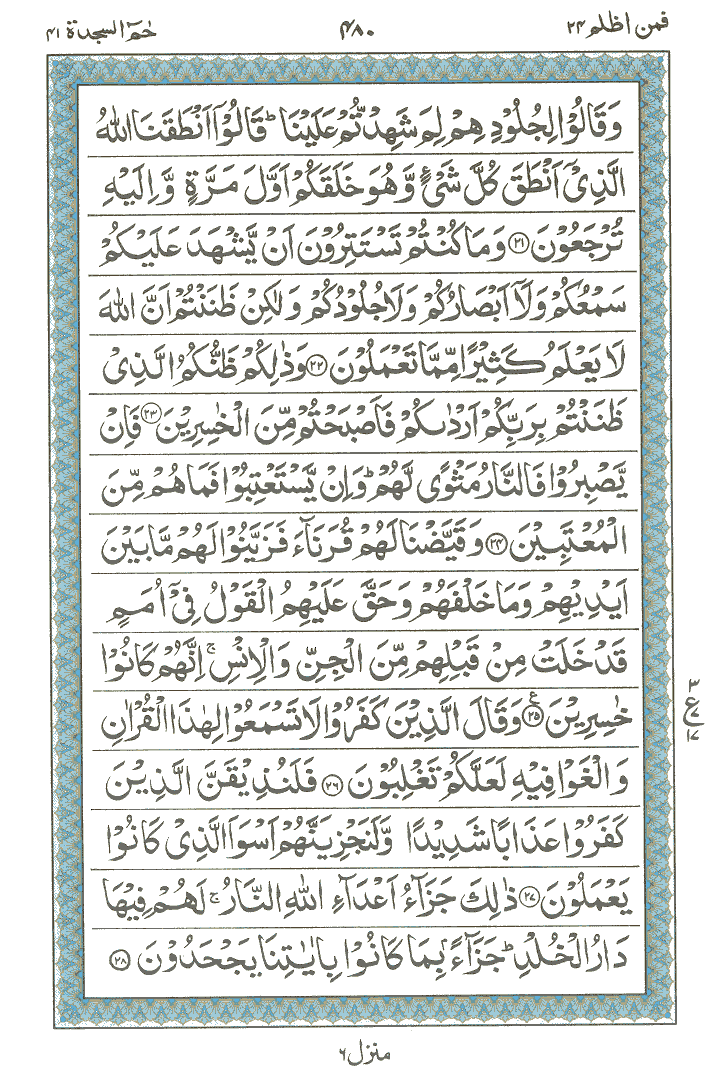 فمن اظلم ٢٤
٤٨٠
حٰمٓ السجدة ٤١
وَقَالُوْا لِجُلُوْدِهِمْ لِمَ شَهِدْتُّمْ عَلَيْنَا ؕ قَالُوْۤا اَنْطَقَنَا اللّٰهُ
الَّذِىْۤ اَنْطَقَ كُلَّ شَىْءٍ وَّهُوَ خَلَقَكُمْ اَوَّلَ مَرَّةٍ وَّاِلَيْهِ
تُرْجَعُوْنَ ۝٢١ وَمَا كُنْتُمْ تَسْتَتِرُوْنَ اَنْ يَّشْهَدَ عَلَيْكُمْ
سَمْعُكُمْ وَلَاۤ اَبْصَارُكُمْ وَلَا جُلُوْدُكُمْ وَلٰكِنْ ظَنَنْتُمْ اَنَّ اللّٰهَ
لَا يَعْلَمُ كَثِيْرًا مِّمَّا تَعْمَلُوْنَ ۝٢٢ وَذٰلِكُمْ ظَنُّكُمُ الَّذِىْ
ظَنَنْتُمْ بِرَبِّكُمْ اَرْدٰىكُمْ فَاَصْبَحْتُمْ مِّنَ الْخٰسِرِيْنَ ۝٢٣ فَاِنْ
يَّصْبِرُوْا فَالنَّارُ مَثْوًى لَّهُمْ ؕ وَاِنْ يَّسْتَعْتِبُوْا فَمَا هُمْ مِّنَ
الْمُعْتَبِيْنَ ۝٢٤ وَقَيَّضْنَا لَهُمْ قُرَنَآءَ فَزَيَّنُوْا لَهُمْ مَّا بَيْنَ
اَيْدِيْهِمْ وَمَا خَلْفَهُمْ وَحَقَّ عَلَيْهِمُ الْقَوْلُ فِىْۤ اُمَمٍ
قَدْ خَلَتْ مِنْ قَبْلِهِمْ مِّنَ الْجِنِّ وَالْاِنْسِ ۚ اِنَّهُمْ كَانُوْا
خٰسِرِيْنَ ۝٢٥ ع وَقَالَ الَّذِيْنَ كَفَرُوْا لَا تَسْمَعُوْا لِهٰذَا الْقُرْاٰنِ
وَالْغَوْا فِيْهِ لَعَلَّكُمْ تَغْلِبُوْنَ ۝٢٦ فَلَنُذِيْقَنَّ الَّذِيْنَ
كَفَرُوْا عَذَابًا شَدِيْدًا وَّلَنَجْزِيَنَّهُمْ اَسْوَاَ الَّذِىْ كَانُوْا
يَعْمَلُوْنَ ۝٢٧ ذٰلِكَ جَزَآءُ اَعْدَآءِ اللّٰهِ النَّارُ ۚ لَهُمْ فِيْهَا
دَارُ الْخُلْدِ ؕ جَزَآءًۢ بِمَا كَانُوْا بِاٰيٰتِنَا يَجْحَدُوْنَ ۝٢٨
٣
ع ٧
١٧
منزل ٦